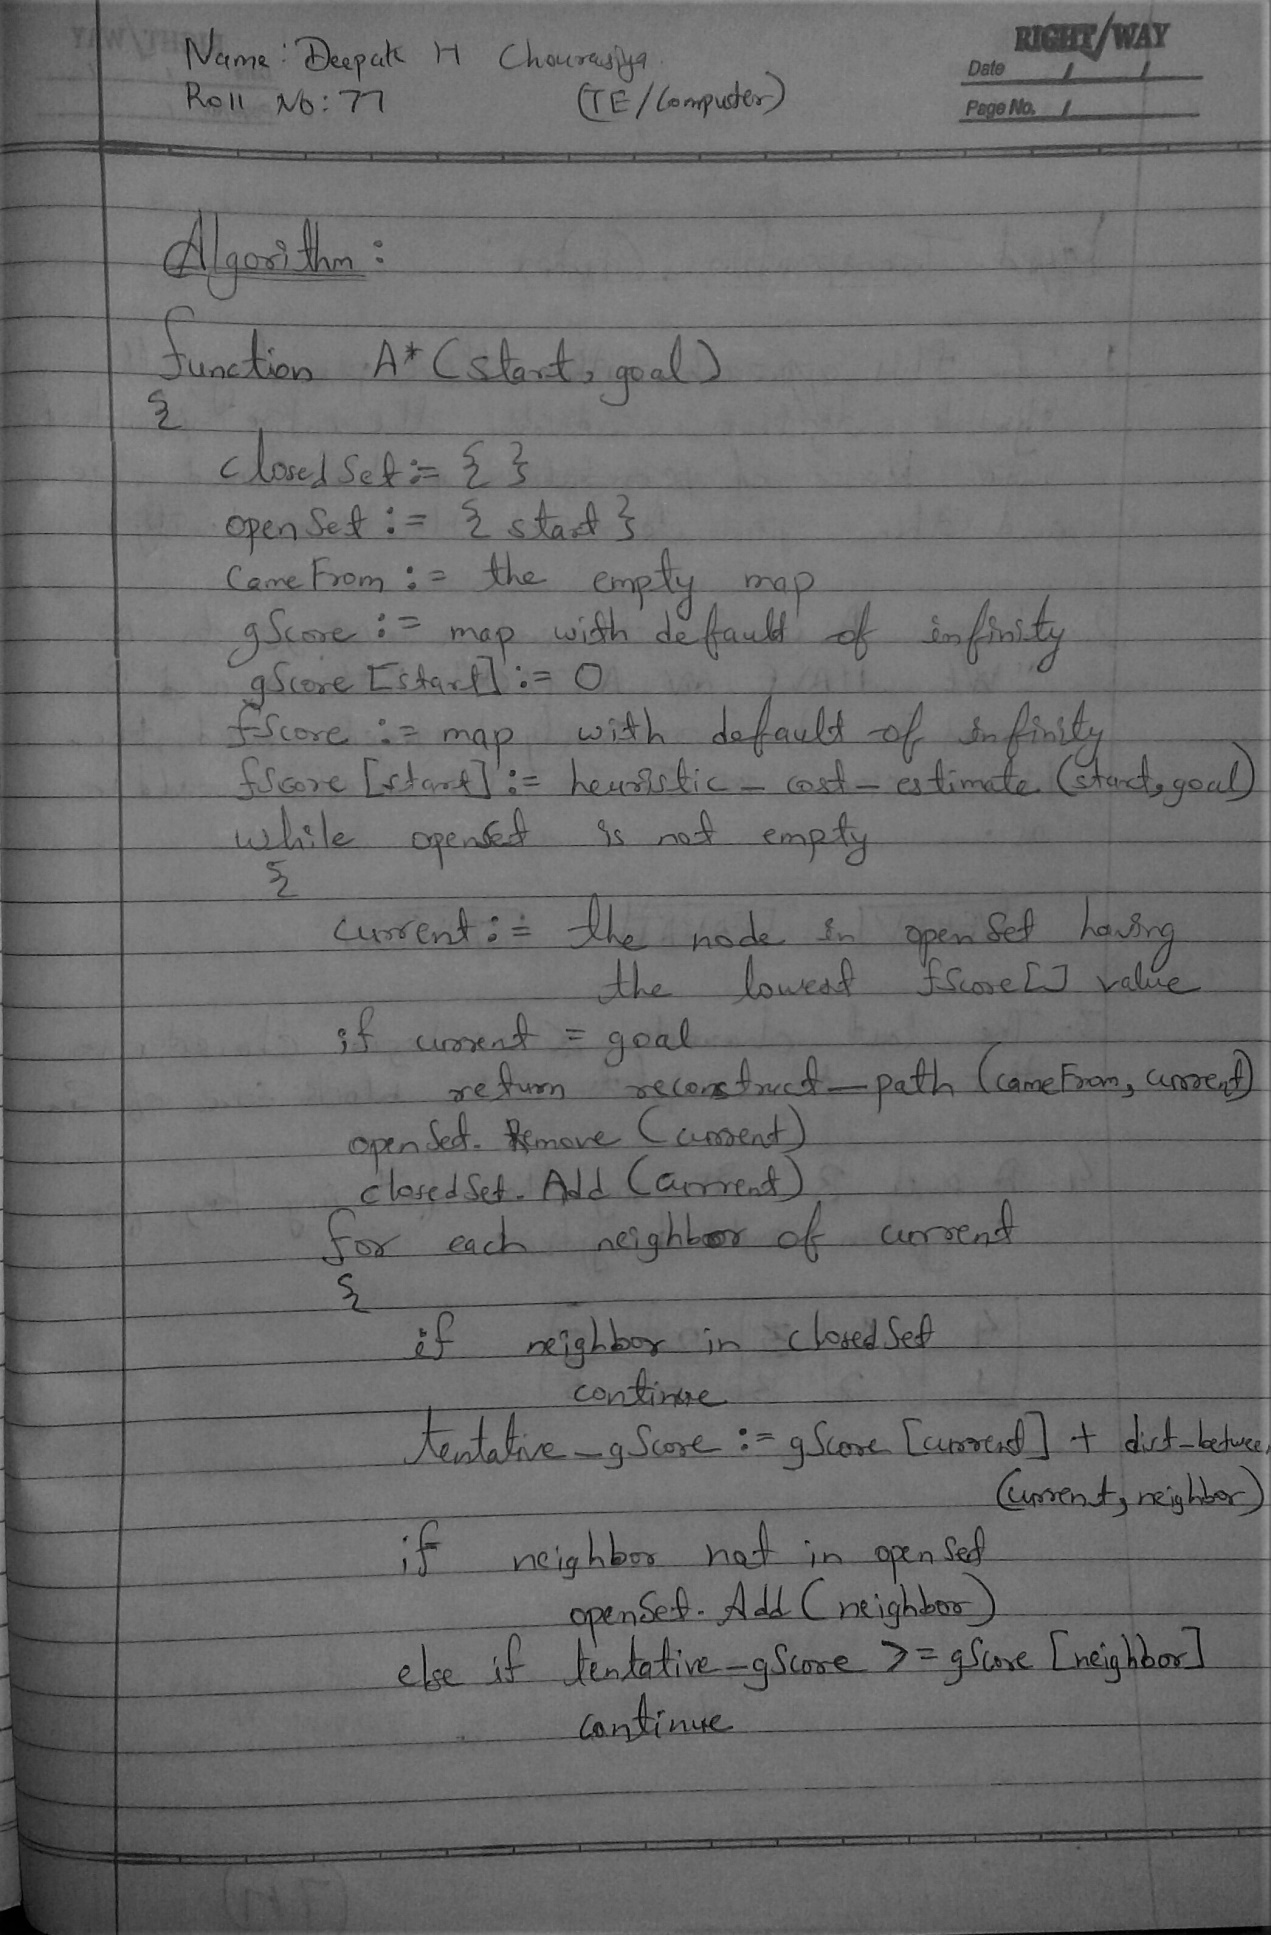 Name: Deepak H Chourasiya
RIGHT/WAY
Date / /
Roll No: 77 (TE/Computer)
Page No. /
Algorithm:
function A* (start, goal)
{
closedSet := { }
openSet := { start }
CameFrom := the empty map
gScore := map with default of infinity
gScore [start] := 0
fScore := map with default of infinity
fScore [start] := heuristic_cost_estimate (start, goal)
while openSet is not empty
{
current := the node in openSet having
the lowest fScore[] value
if current = goal
return reconstruct_path (cameFrom, current)
openSet. Remove (current)
closedSet. Add (current)
for each neighbor of current
{
if neighbor in closedSet
continue
tentative_gScore := gScore [current] + dist_betwee
(current, neighbor)
if neighbor not in openSet
openSet. Add (neighbor)
else if tentative_gScore >= gScore [neighbor]
continue